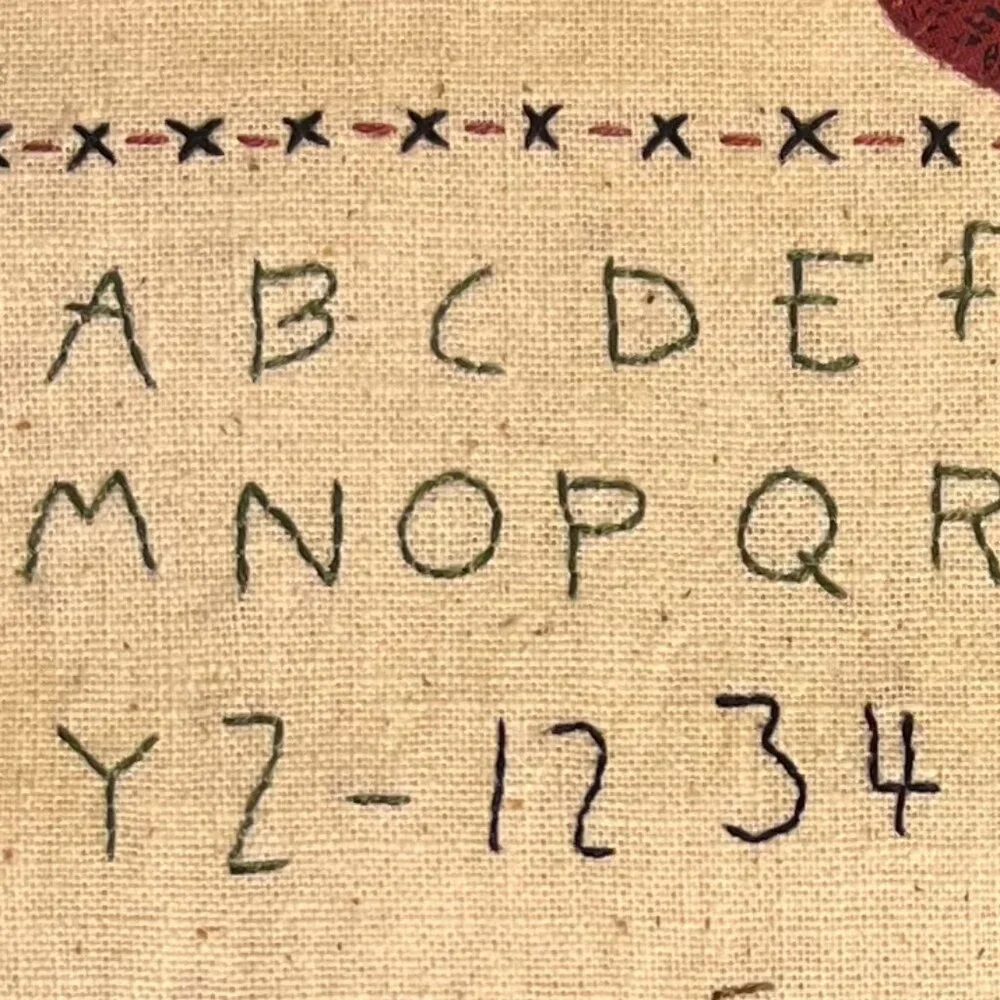 A B C D E F
M N O P Q R
Y Z - 1 2 3 4